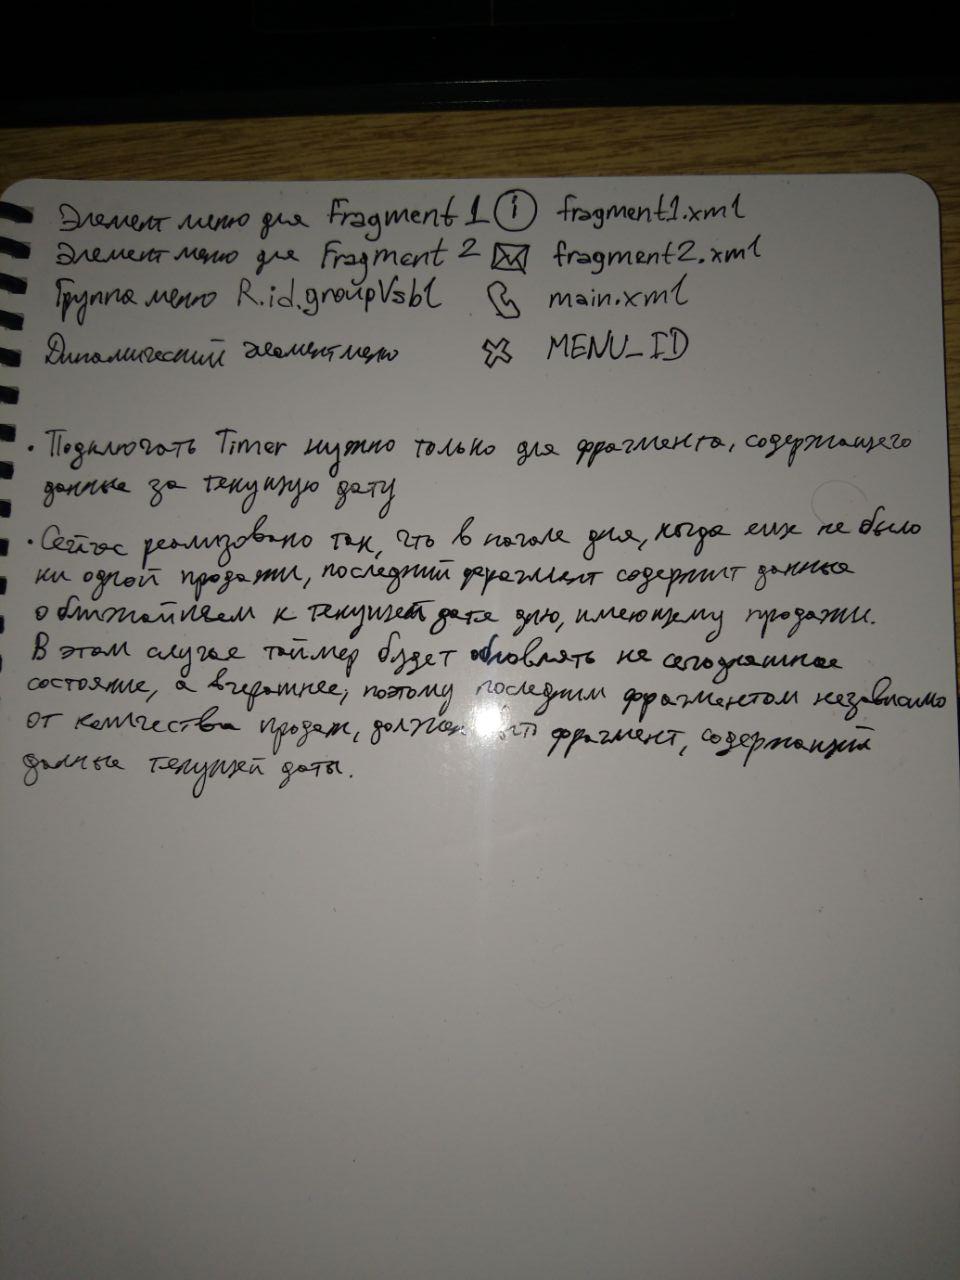 Элемент меню для Fragment 1 i fragment1.xml
Элемент меню для Fragment 2 fragment2.xml
Группа меню R.id.groupVsbl main.xml
Динамический элемент меню MENU_ID
· Подключать Timer нужно только для фрагмента, содержащего
данные за текущую дату
· Сейчас реализовано так, что в начале дня, когда еще не было
ни одной продажи, последний фрагмент содержит данные
о ближайшем к текущей дате дню, имеющему продажи.
В этом случае таймер будет обновлять не сегодняшнее
состояние, а вчерашнее, поэтому последним фрагментом независимо
от количества продаж, должен быть фрагмент, содержащий
данные текущей даты.